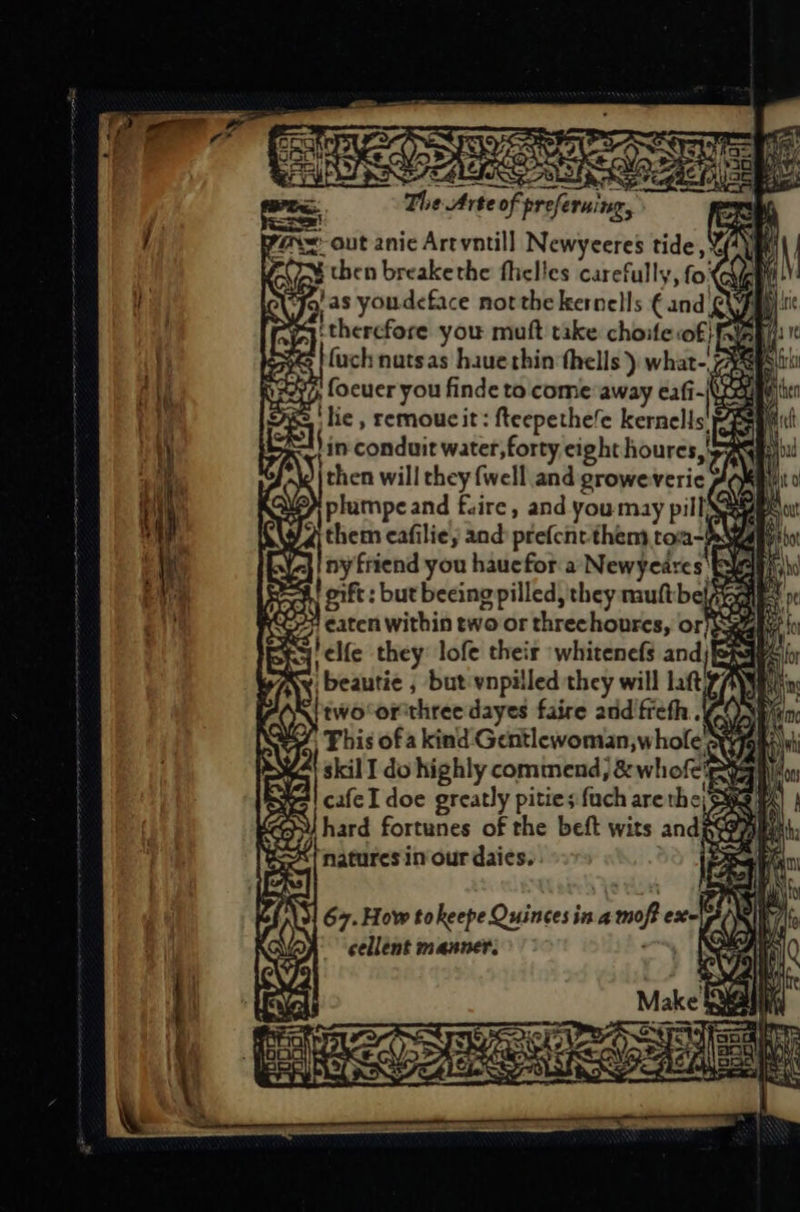 The Arte of preseruing,
out anie Art vntill Newyeeres tide,
then breake the shelles carefully, so
as you deface not the kernells (and
therefore you must take choise of
such nuts as haue thin shells) what-
soeuer you finde to come away easi-
lie, remoue it: steepe these kernells
in conduit water, forty eight houres,
then will they swell and growe verie
plumpe and faire, and you may pill
them easilie, and present them to a-
ny friend you haue for a Newyeares
gift: but beeing pilled, they must be
eaten within two or three houres, or
else they lose their whiteness and
beautie, but vnpilled they will last
two or three dayes faire and fresh.
This of a kind Gentlewoman, whose
skil I do highly commend, & whose
case I doe greatly pitie; such are the
hard fortunes of the best wits and
natures in our daies.
67. How to keepe Quinces in a most ex-
cellent manner.
Make